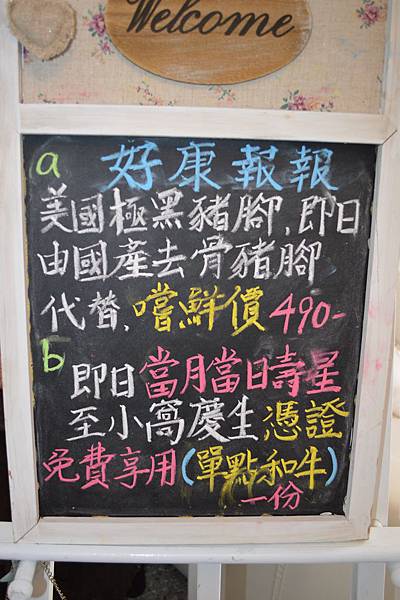 Welcome
a 好康報報
美國極黑豬腳,即日
由國產去骨豬腳
代替,嚐鮮價490-
b 即日當月當日壽星
至小窩慶生憑證
免費享用(單點和牛)
一份